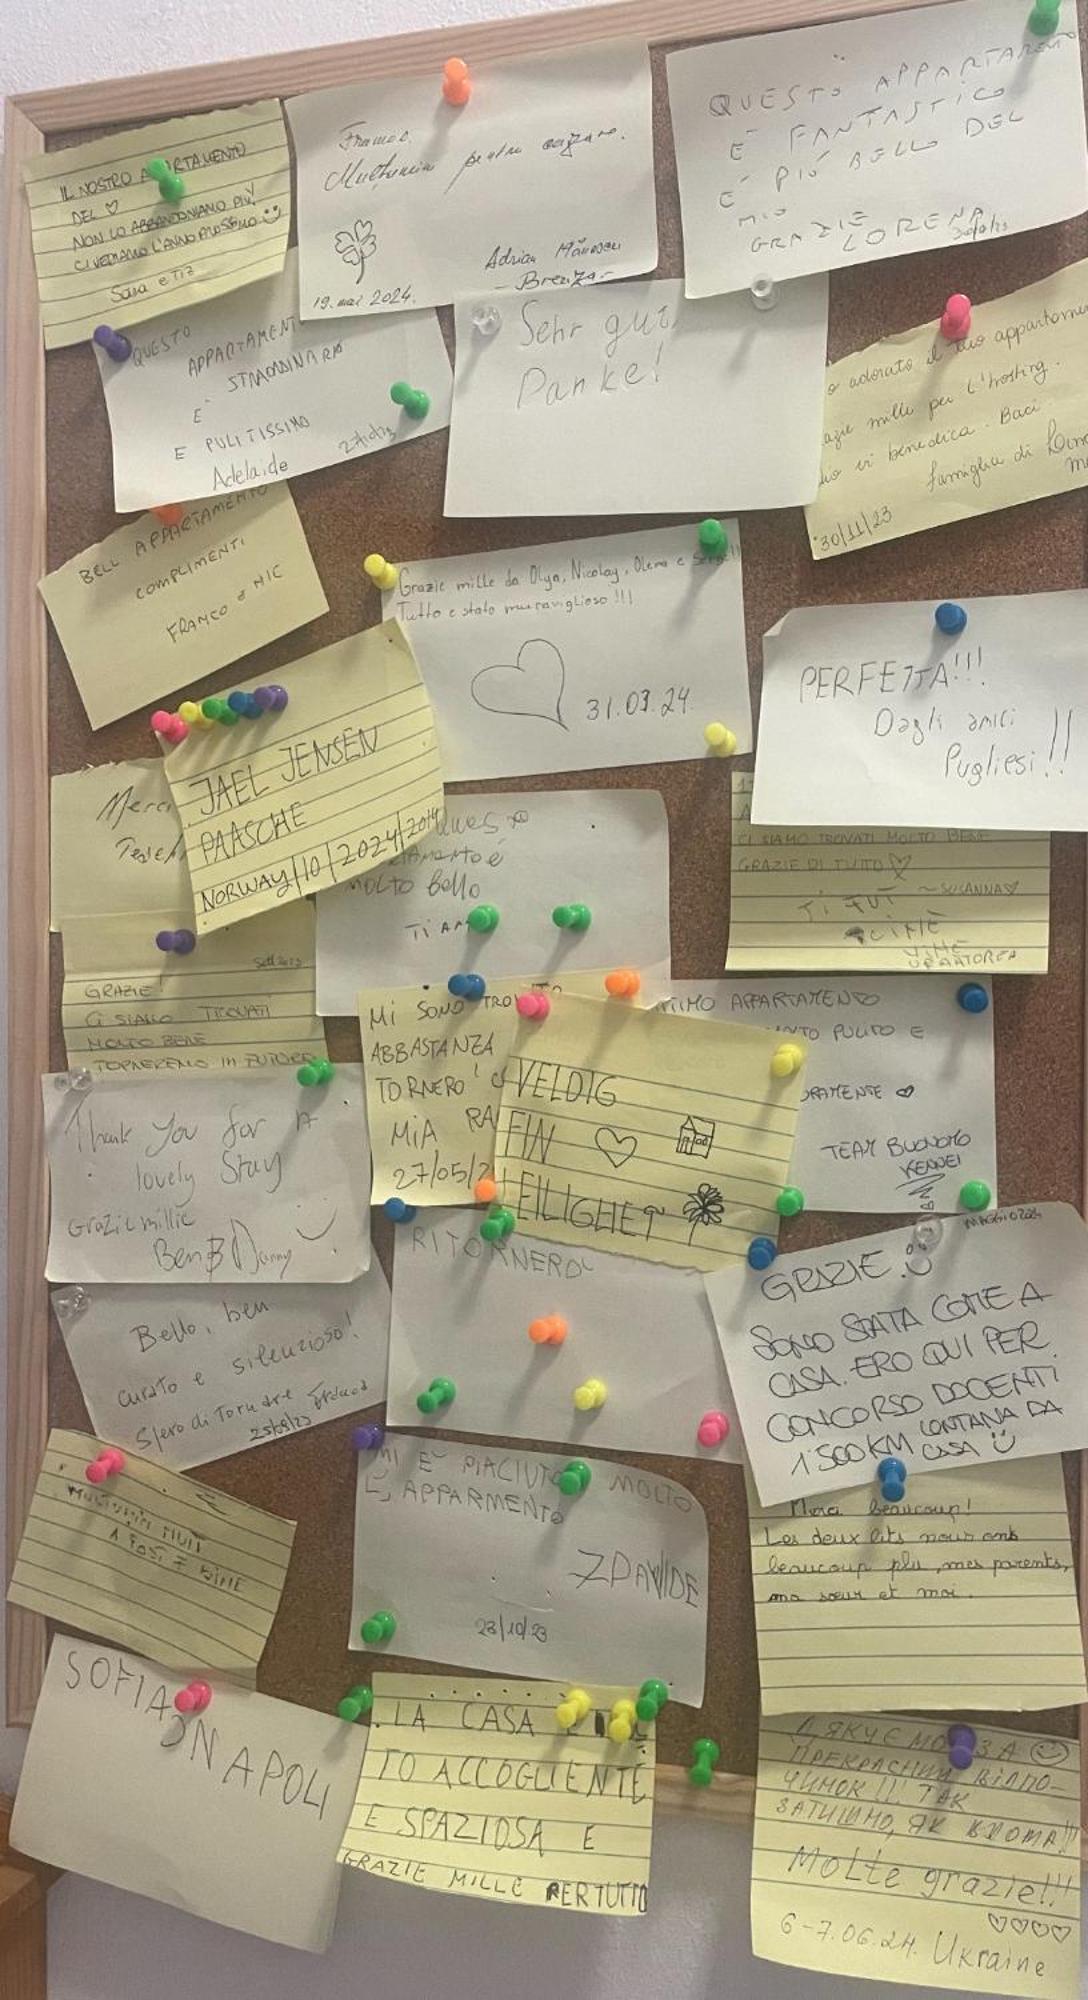 IL NOSTRO APPARTAMENTO
DEL ♡
NON LO ABBANDONIAMO PIÙ!
CI VEDIAMO L'ANNO PROSSIMO
Sara e Tiz
Frumos.
Mulțumim pentru cazare.
Adrian
Breaza
19. mai 2024.
QUESTO APPARTAMENTO
È FANTASTICO
E' PIÙ BELLO DEL
MIO
GRAZIE LORENA
QUESTO
APPARTAMENTO
E' STRAORDINARIO
E PULITISSIMO
Adelaide
Sehr gut
Danke!
o adorato il tuo appartamen
azie mille per l'hosting.
dio vi benedica. Baci.
famiglia di
30/11/23
BELL APPARTAMENTO
COMPLIMENTI
FRANCO e MIC
Grazie mille da Olya, Nicolay, Olena e
Tutto e stato meraviglioso!!!
31.03.24.
PERFETTA!!!
Dagli amici
Pugliesi!!
Merci
JAEL JENSEN
PAASCHE
NORWAY/10/2024/2014
QUESTO
MOLTO Bello
CI SIAMO TROVATI MOLTO BENE
GRAZIE DI TUTTO ♡
~SUSANNA♡
Sett 2023
GRAZIE!
CI SIAMO TROVATI
MOLTO BENE
TORNEREMO IN FUTURO
Mi SONO TROVATO
ABBASTANZA
TORNERO'
MiA RA
27/05/2
VELDIG
FIN ♡
LEILIGHET
TIMO APPARTAMENTO
MOLTO PULITO E
ORAMENTE ♡
TEAM BUONOMO
KENNEL
Thank you for A
lovely Stay
Grazie millie
Ben & Danny
RITORNERO'
MAGGIO 2024
GRAZIE.
SONO STATA COME A
CASA. ERO QUI PER
CONCORSO DOCENTI
1500KM LONTANA DA
CASA
Bello, ben
curato e silenzioso!
Spero di Tornare
25/09/23
MI E' PIACIUTO MOLTO
L'APPARMENTO
DAVIDE
23/10/23
Merci beaucoup!
Les deux lits nous ont
beaucoup plu, mes parents,
ma sœur et moi.
MULȚUMIM MULT
A FOST F BINE
SOFIA
NAPOLI
LA CASA E
TO ACCOGLIENTE
E SPAZIOSA E
GRAZIE MILLE PER TUTTO
ДЯКУЄМО ЗА
ПРЕКРАСНИЙ ВІДПО-
ЧИНОК!! ТАК
ЗАТИШНО, ЯК ВДОМА!!
Molte grazie!!!
♡♡♡♡
6-7.06.24. Ukraine